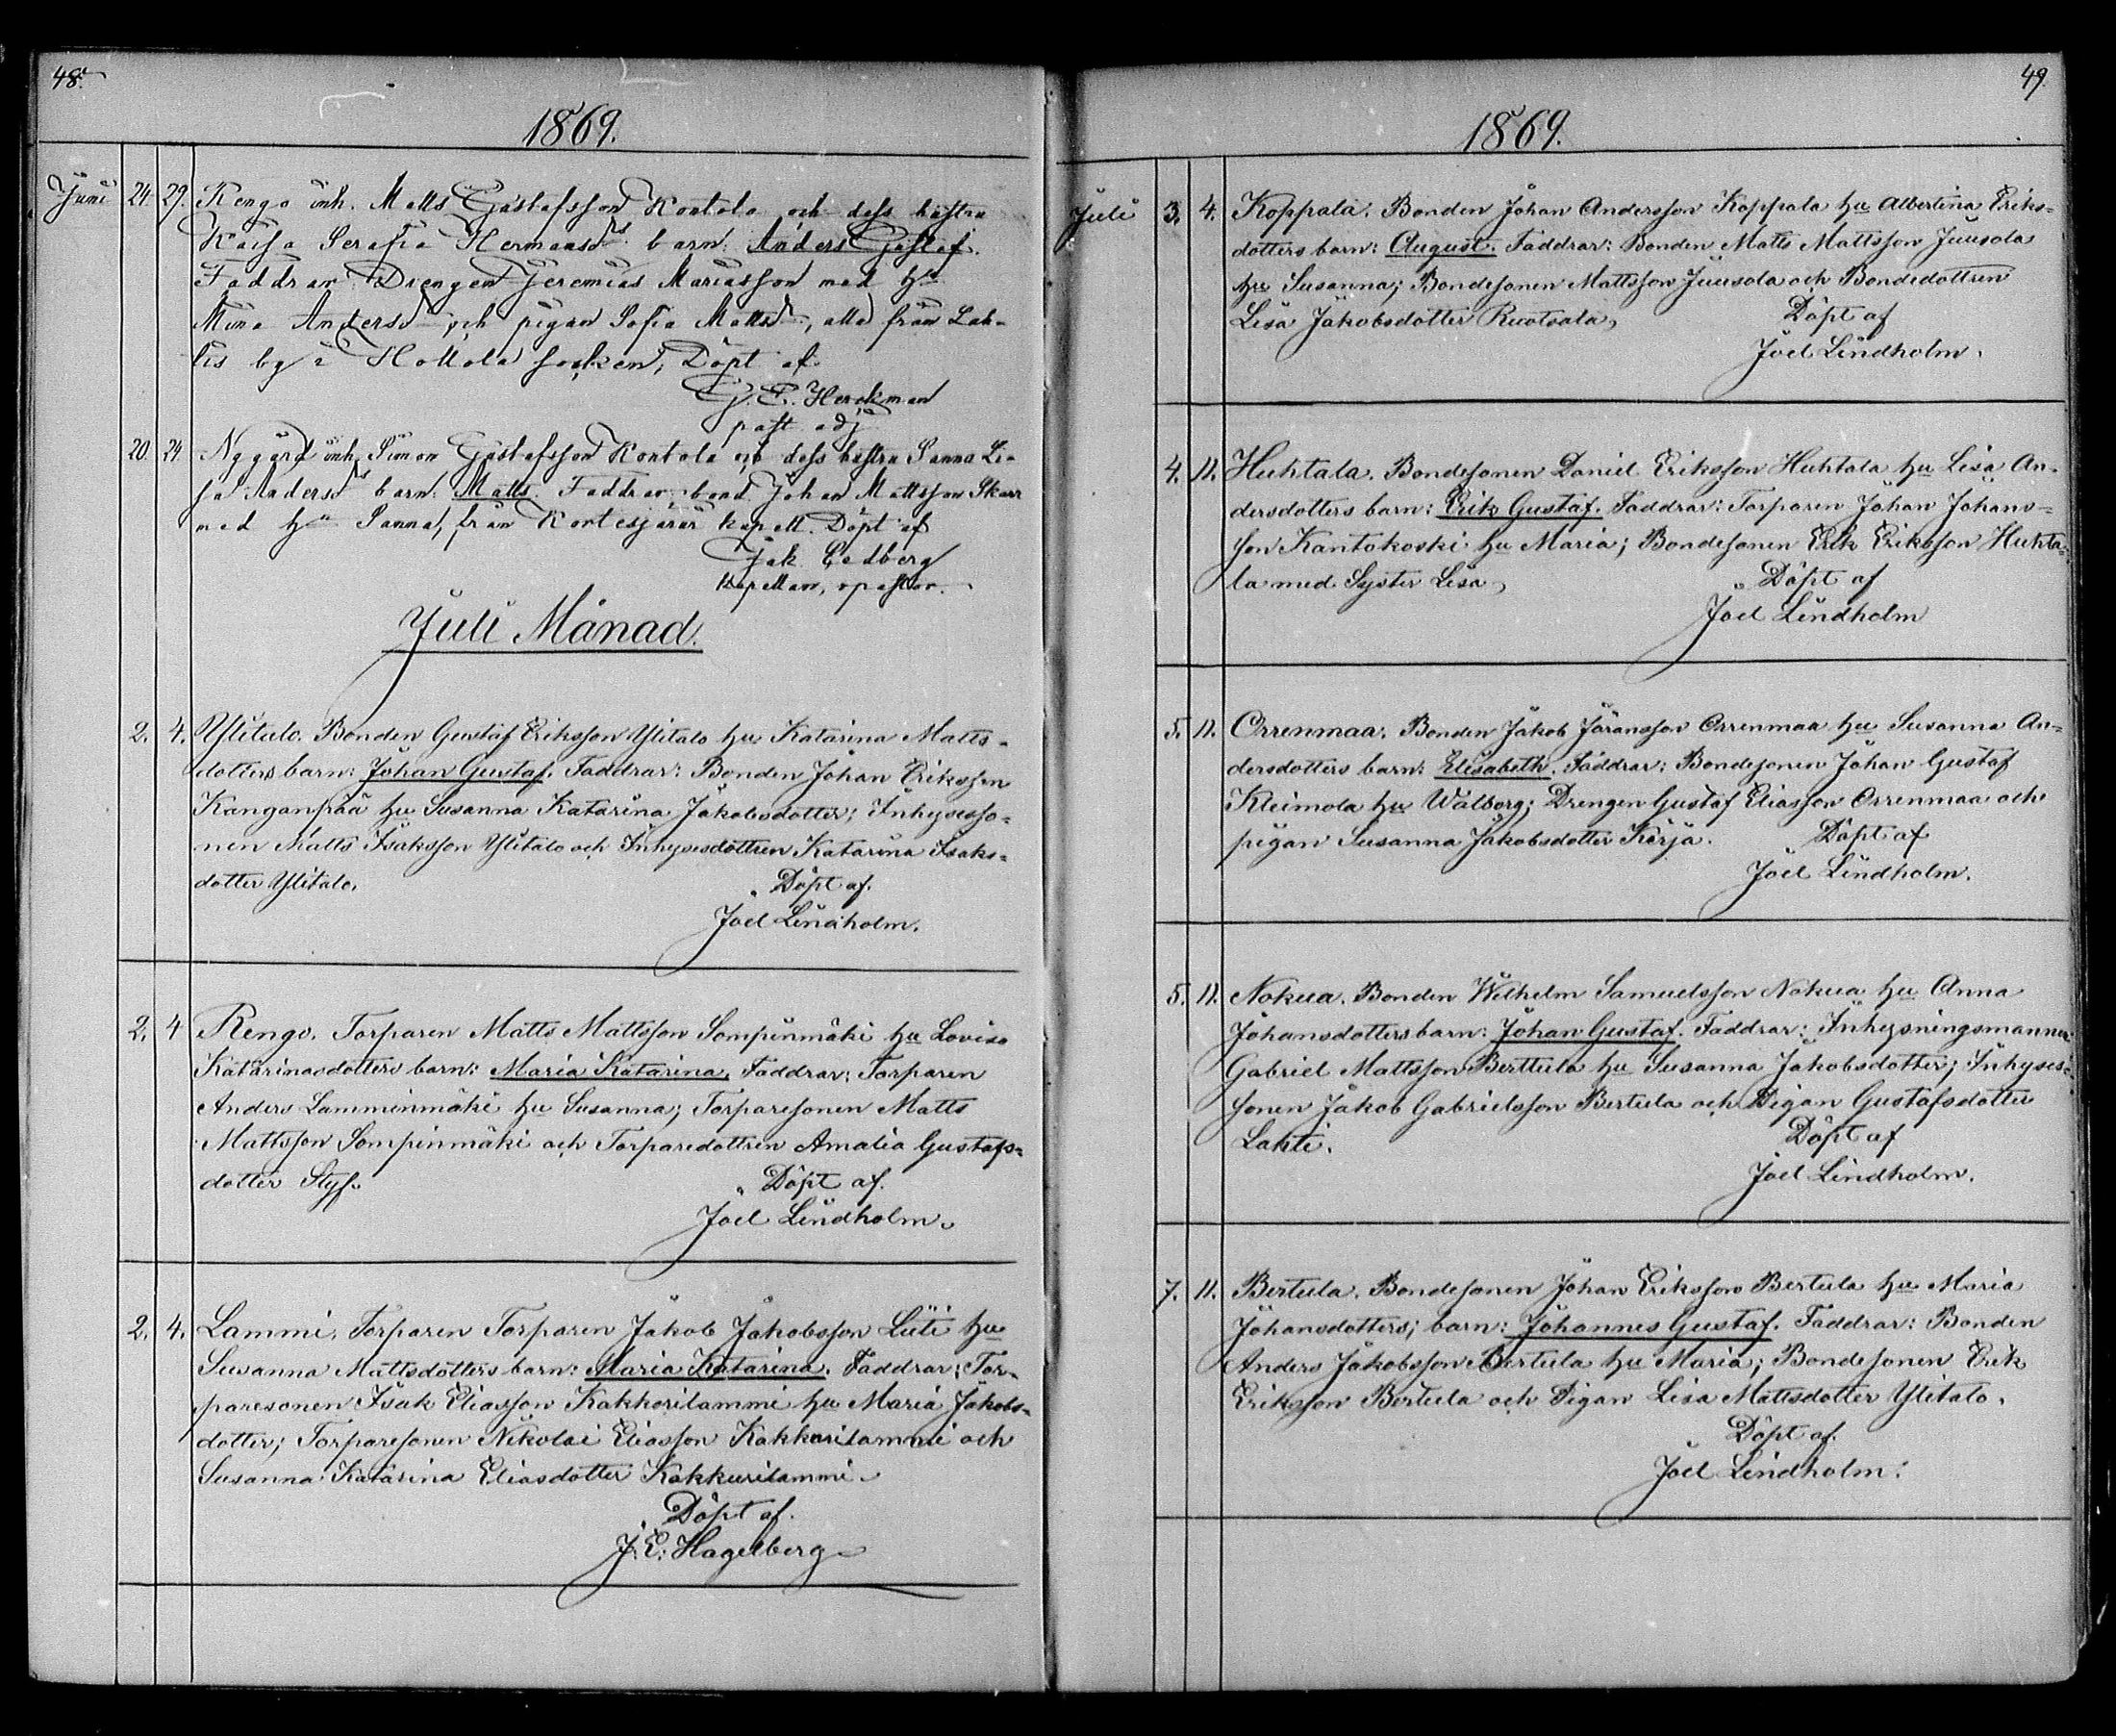 48.
1869.
Juni 24. 29. Rengo inh. Matts Gustafsson Kontola och dess hustru
Kaisa Serafia Hermansds barn: Anders Gustaf.
Faddrar: Drengen Jeremias Mariasson med hu
Mina Andersdr och pigan Sofia Mattsdr, alla från Lah-
tis by i Hollola socken, Döpt af
G. E. Herckman
past adj
20. 24. Nygård inh. Simon Gustafsson Kontola och dess hustru Sanna Li-
sa Andersds barn: Matts. Faddrar: bond. Johan Mattsson Skarr
med hu Sanna, från Kortesjärvi kapell. Döpt af
Jak. Cedberg
Kapellan, v pastor.
Juli Månad.
2. 4. Ylitalo. Bonden Gustaf Eriksson Ylitalo hu Katarina Matts-
dotters barn: Johan Gustaf. Faddrar: Bonden Johan Eriksson
Kanganpää hu Susanna Katarina Jakobsdotter; Inhysesso-
nen Matts Isaksson Ylitalo och Inhysesdottren Katarina Isaks-
dotter Ylitalo.
Döpt af.
Joel Lindholm.
2. 4 Rengo. Torparen Matts Mattsson Sompinmäki hu Lovisa
Katarinasdotters barn: Maria Katarina. Faddrar: Torparen
Anders Lamminmäki hu Susanna; Torparesonen Matts
Mattsson Sompinmäki och Torparedottren Amalia Gustafs-
dotter Styf.
Döpt af.
Joel Lindholm.
2. 4. Lammi. Torparen Torparen Jakob Jakobsson Liiti hu
Susanna Mattsdotters barn: Maria Katarina. Faddrar: Tor-
paresonen Isak Eliasson Kakkorilammi hu Maria Jakobs-
dotter; Torparesonen Nikolai Eliasson Kakkurilammi och
Susanna Katarina Eliasdotter Kakkurilammi.
Döpt af.
J. E. Hagelberg
49.
1869.
Juli 3. 4. Koppala. Bonden Johan Andersson Koppala hu Albertina Eriks-
dotters barn: August. Faddrar: Bonden Matts Mattsson Juusola
hu Susanna; Bondesonen Mattsson Juusola och Bondedottren
Lisa Jakobsdotter Ruotsala,
Döpt af
Joel Lindholm.
4. 11. Huhtala. Bondesonen Daniel Eriksson Huhtala hu Lisa An-
dersdotters barn: Erik Gustaf. Faddrar: Torparen Johan Johans-
son Kantokoski hu Maria; Bondesonen Erik Eriksson Huhta-
la med Syster Lisa,
Döpt af
Joel Lindholm
5. 11. Orrenmaa. Bonden Jakob Jöransson Orrenmaa hu Susanna An-
dersdotters barn: Elisabeth. Faddrar: Bondesonen Johan Gustaf
Kleimola hu Walborg; Drengen Gustaf Eliasson Orrenmaa och
pigan Susanna Jakobsdotter Karja.
Döpt af
Joel Lindholm.
5. 11. Nokua. Bonden Wilhelm Samuelsson Nokua hu Anna
Johansdotters barn: Johan Gustaf. Faddrar: Inhysningsmannen
Gabriel Mattsson Berttula hu Susanna Jakobsdotter; Inhyses-
sonen Jakob Gabrielsson Bertula och Pigan Gustafsdotter
Lahti.
Döpt af
Joel Lindholm.
7. 11. Bertula. Bondesonen Johan Eriksson Bertula hu Maria
Johansdotters; barn: Johannes Gustaf. Faddrar: Bonden
Anders Jakobsson Bertula hu Maria; Bondesonen Erik
Eriksson Bertula och Pigan Lisa Mattsdotter Ylitalo.
Döpt af.
Joel Lindholm.